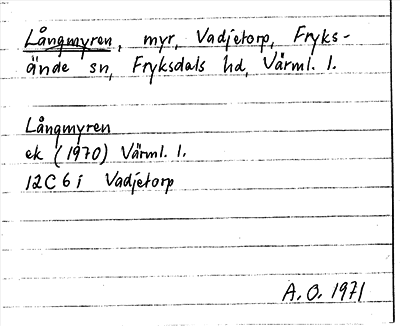 Långmyren, myr, Vadjetorp, Fryks-
ände sn, Fryksdals hd, Värml. l.
Långmyren
ek (1970) Värml. l.
12C 6i Vadjetorp
A. O. 1971